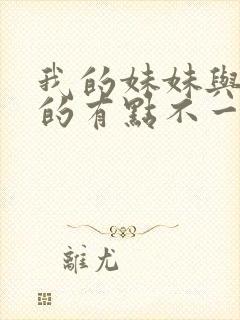 我的妹妹與
的有點不一
離尤